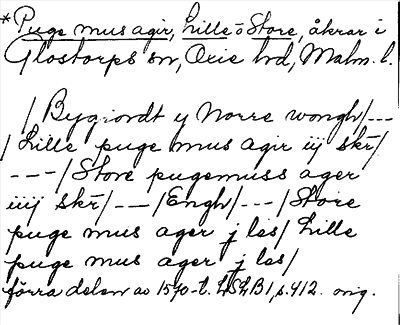 *Puge mus agir, Lille o Store, åkrar i
Glostorps sn, Oxie hd, Malm. l.
/Bygiordt y Norre wongh/---
/Lille puge mus agir iij skr/
---/Store pugemuss ager
iiij skr/---/Engh/---/Store
puge mus ager j les/Lille
puge mus ager j les/
förra delen av 1570-t. LSLB1, s. 412. orig.